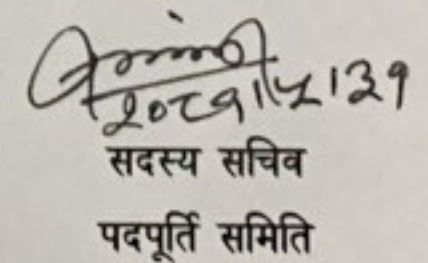 २०८१।५।३१
सदस्य सचिव
पदपूर्ति समिति